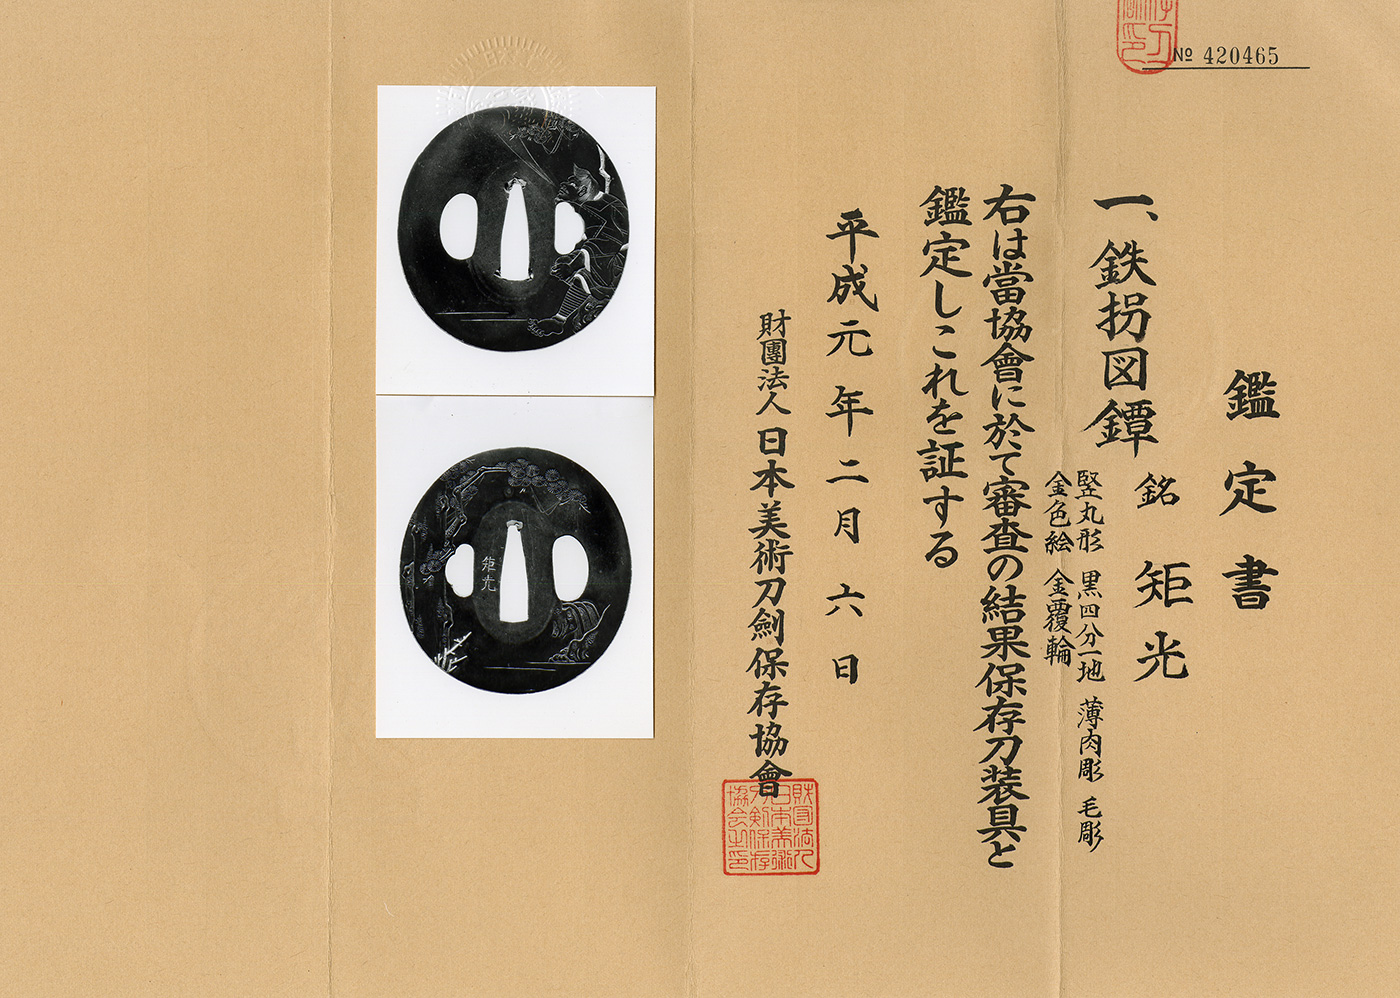 № 420465
鑑定書
一、鉄拐図鐔
銘 矩光
竪丸形 黒四分一地 薄肉彫 毛彫
金色絵 金覆輪
右は當協會に於て審査の結果保存刀装具と
鑑定しこれを証する
平成元年二月六日
財團法人日本美術刀劍保存協會
財団法人
日本美術
刀剣保存
協会之印
矩光